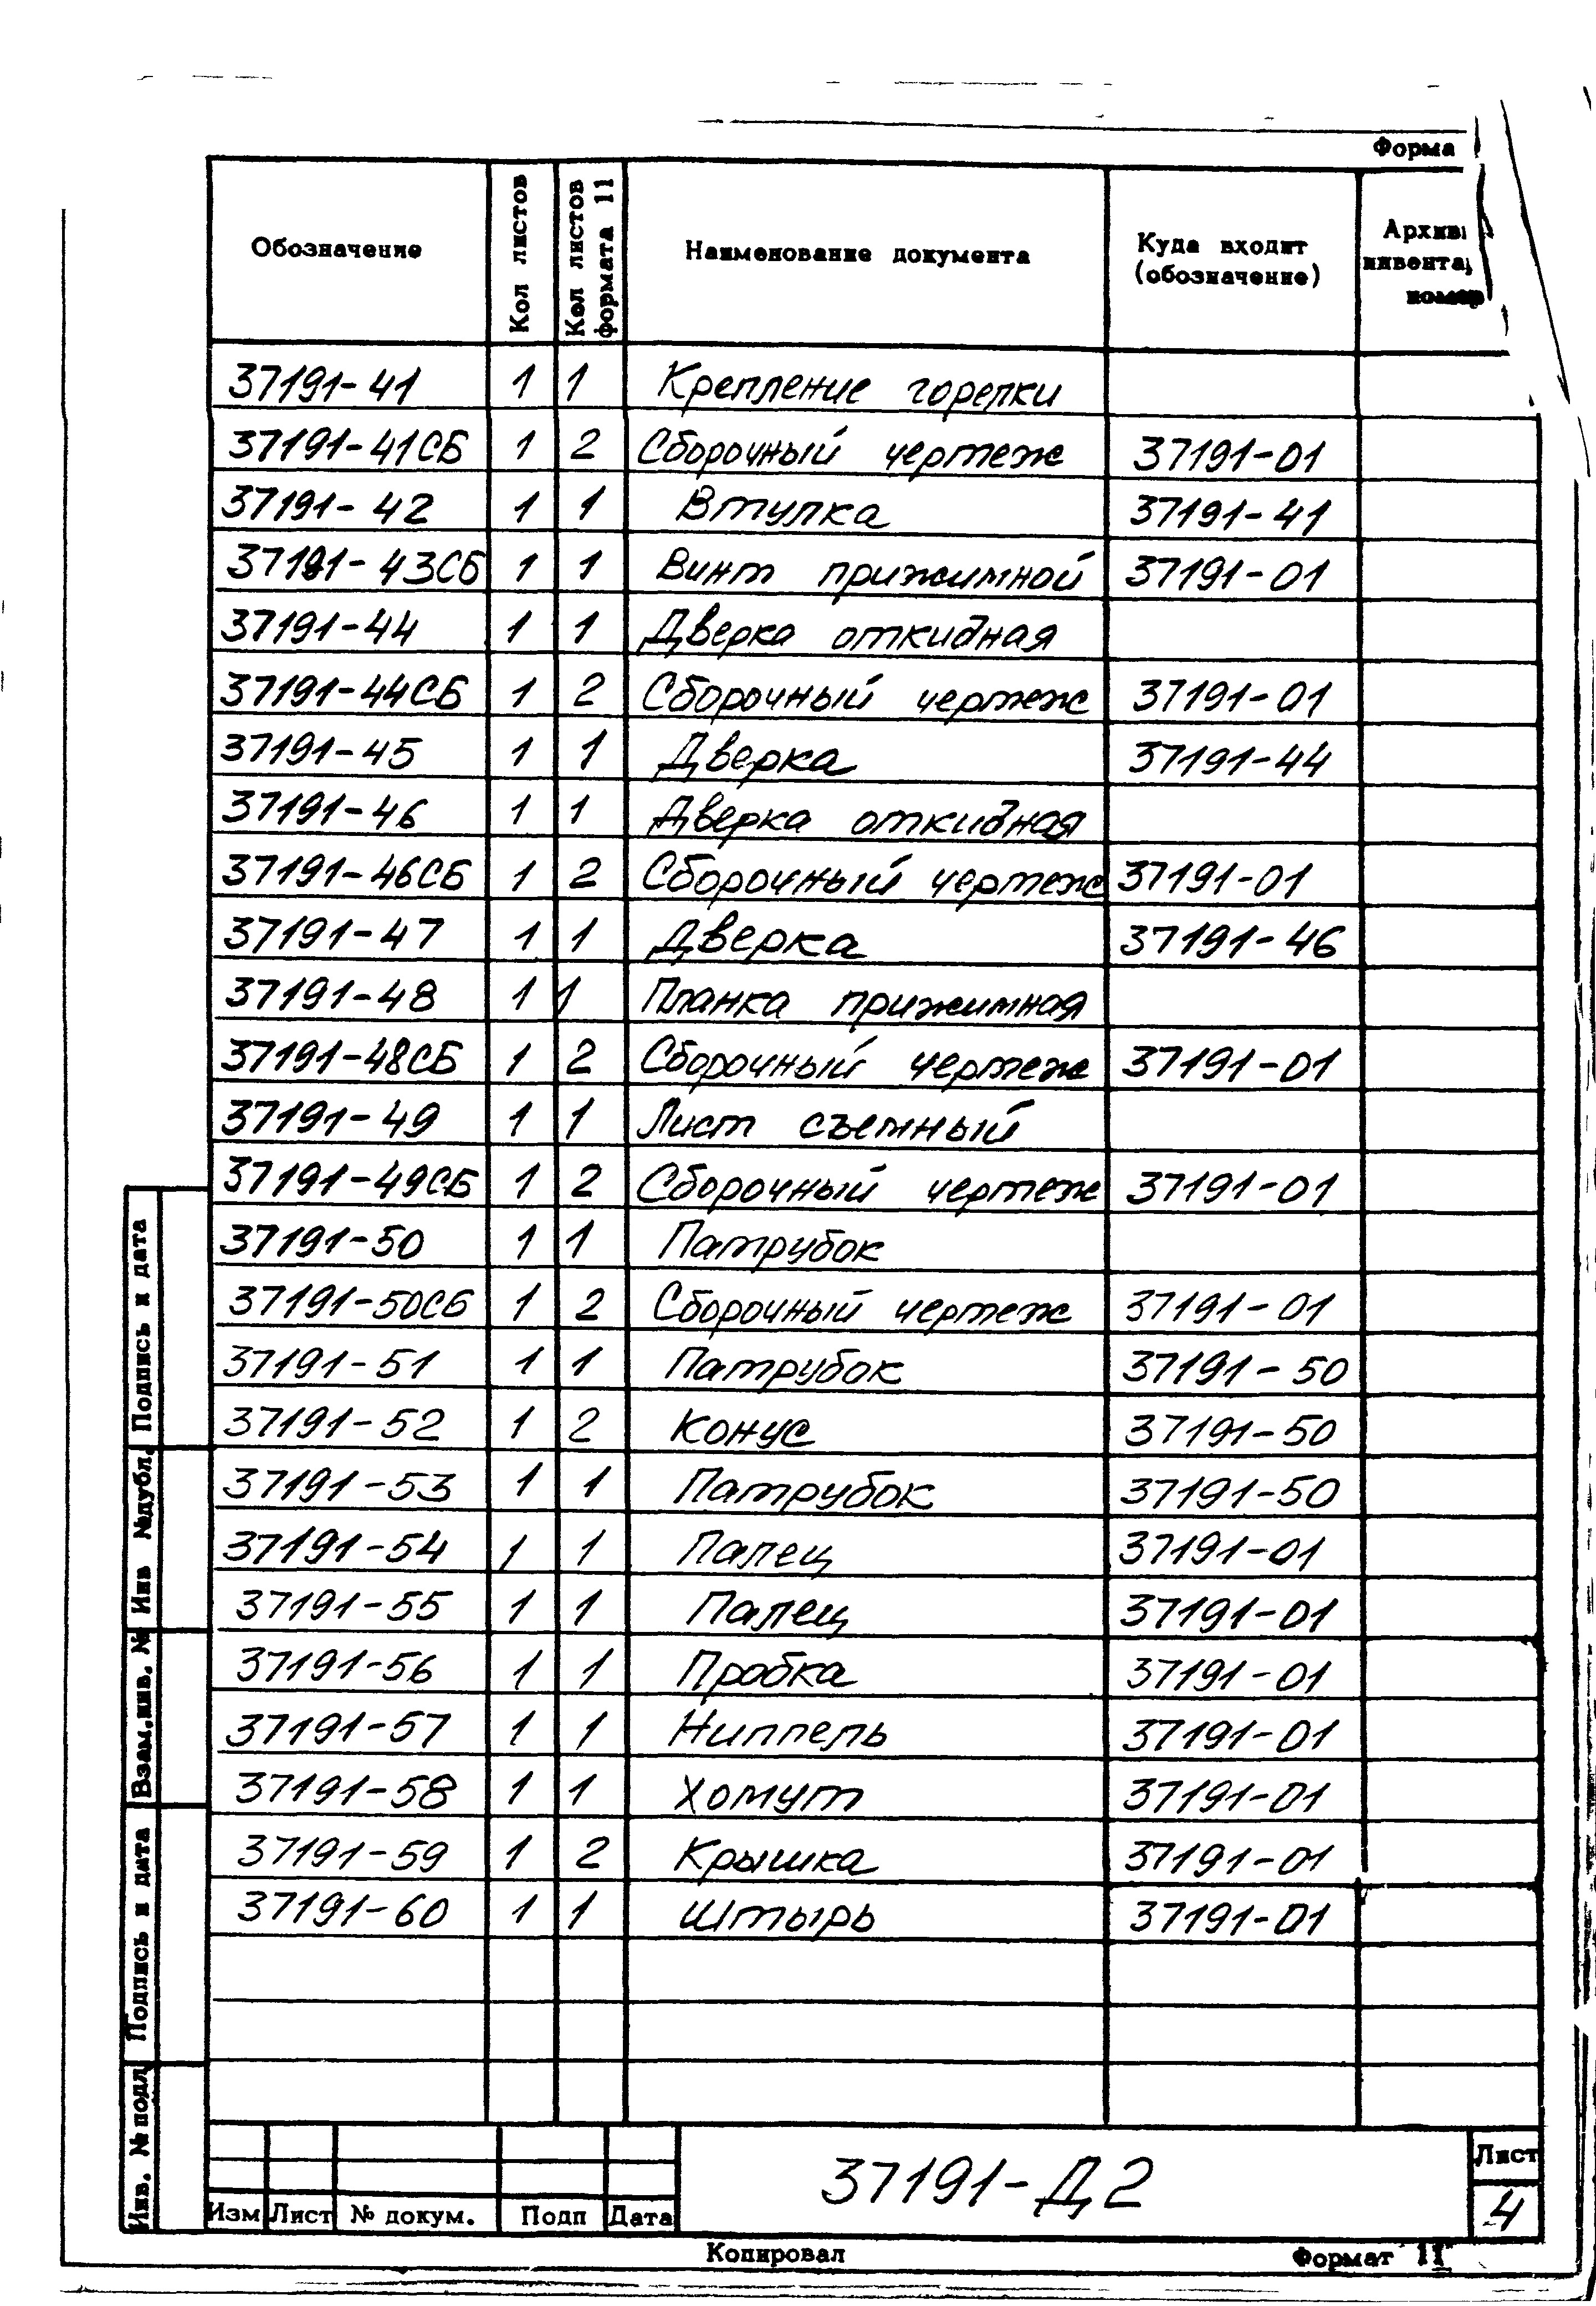 Форма
Обозначение
Кол листов
Кол листов формата 11
Наименование документа
Куда входит (обозначение)
37191-41 1 1 Крепление горелки
37191-41СБ 1 2 Сборочный чертеж 37191-01
37191-42 1 1 Втулка 37191-41
37191-43СБ 1 1 Винт прижимной 37191-01
37191-44 1 1 Дверка откидная
37191-44СБ 1 2 Сборочный чертеж 37191-01
37191-45 1 1 Дверка 37191-44
37191-46 1 1 Дверка откидная
37191-46СБ 1 2 Сборочный чертеж 37191-01
37191-47 1 1 Дверка 37191-46
37191-48 1 1 Планка прижимная
37191-48СБ 1 2 Сборочный чертеж 37191-01
37191-49 1 1 Лист съемный
37191-49СБ 1 2 Сборочный чертеж 37191-01
37191-50 1 1 Патрубок
37191-50СБ 1 2 Сборочный чертеж 37191-01
37191-51 1 1 Патрубок 37191-50
37191-52 1 2 Конус 37191-50
37191-53 1 1 Патрубок 37191-50
37191-54 1 1 Палец 37191-01
37191-55 1 1 Палец 37191-01
37191-56 1 1 Пробка 37191-01
37191-57 1 1 Ниппель 37191-01
37191-58 1 1 Хомут 37191-01
37191-59 1 2 Крышка 37191-01
37191-60 1 1 Штырь 37191-01
Подпись и дата
Инв №дубл.
Взам.инв. №
Подпись и дата
Инв. №подл
Изм Лист № докум. Подп Дата
37191-Д2
Лист
4
Копировал
Формат 11